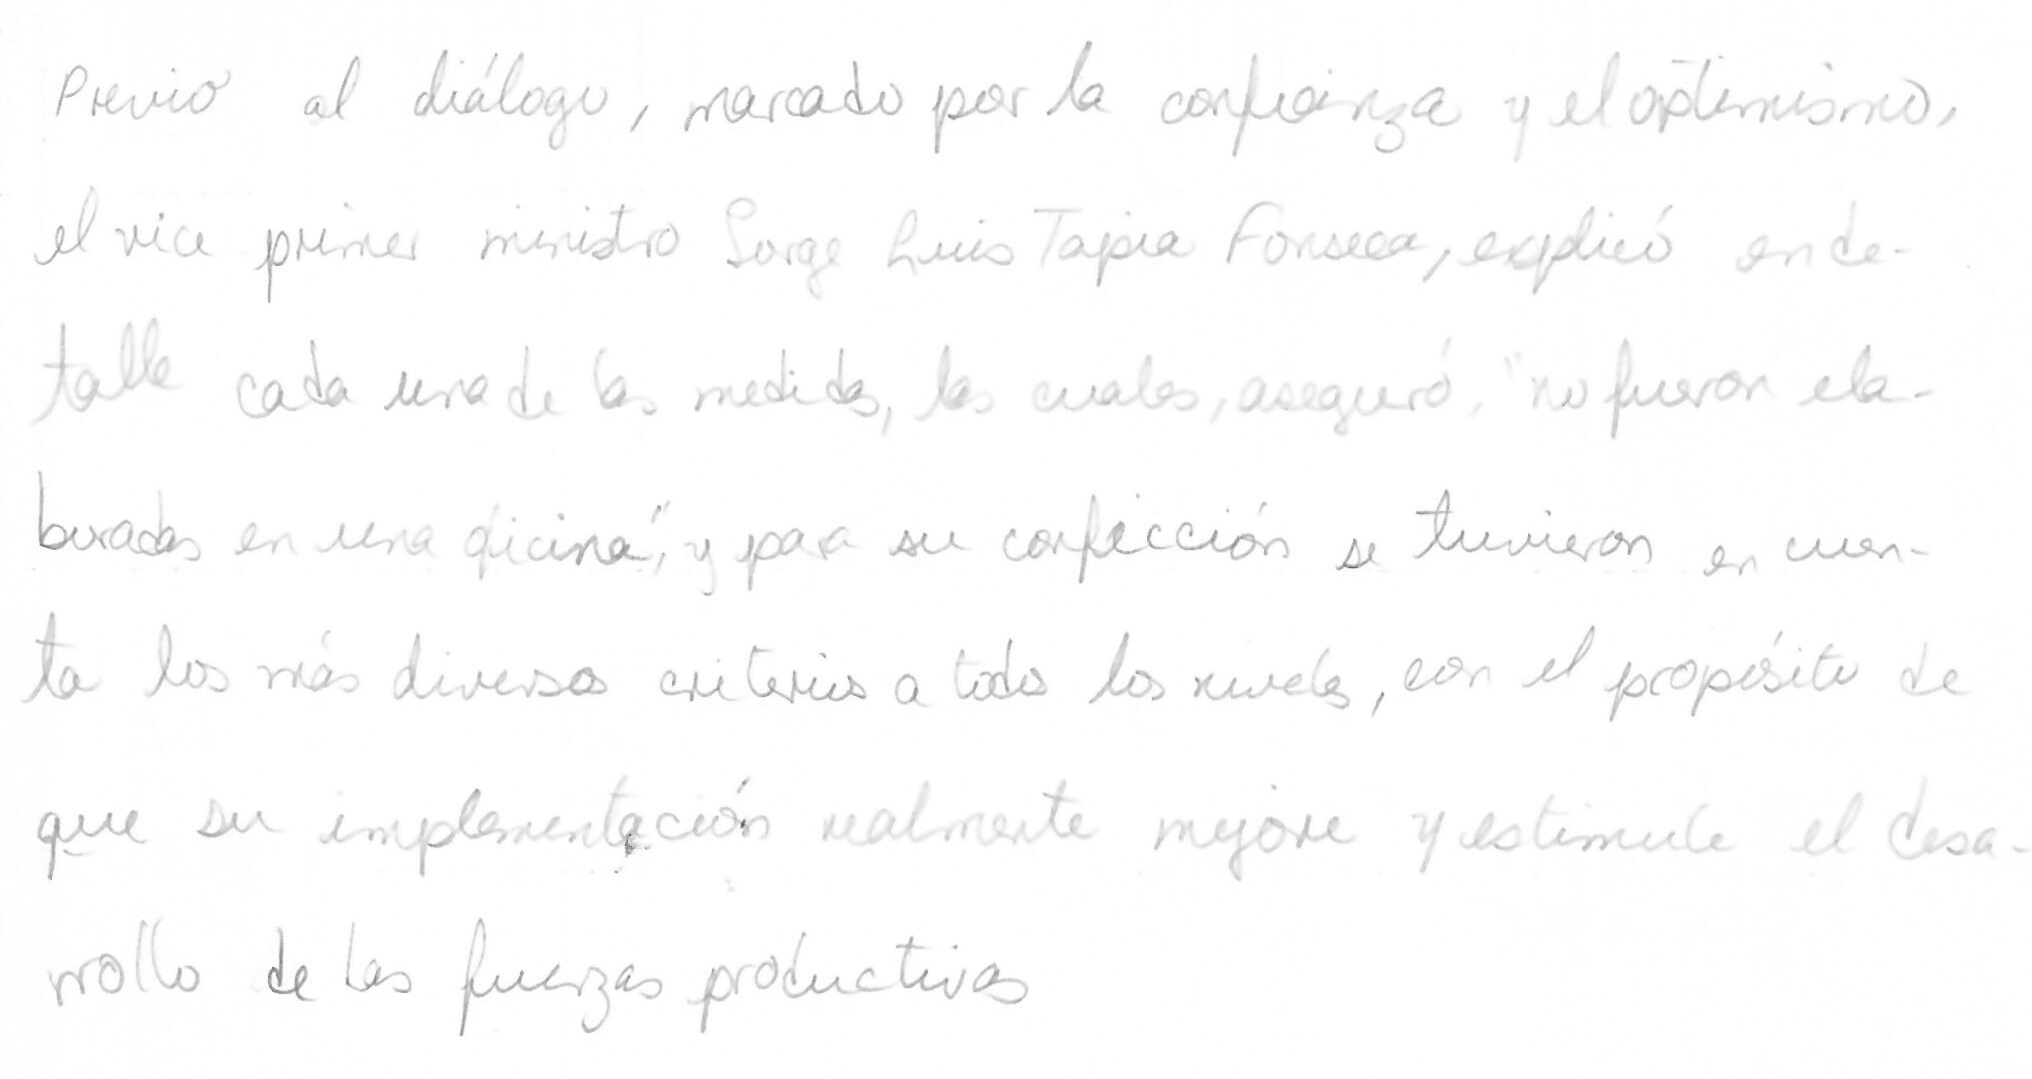 Previo al diálogo, marcado por la confianza y el optimismo,
el vice primer ministro Jorge Luis Tapia Fonseca, explicó en de-
talle cada una de las medidas, las cuales, aseguró, "no fueron ela-
boradas en una oficina", y para su confección se tuvieron en cuen-
ta los más diversos criterios a todos los niveles, con el propósito de
que su implementación realmente mejore y estimule el desa-
rrollo de las fuerzas productivas